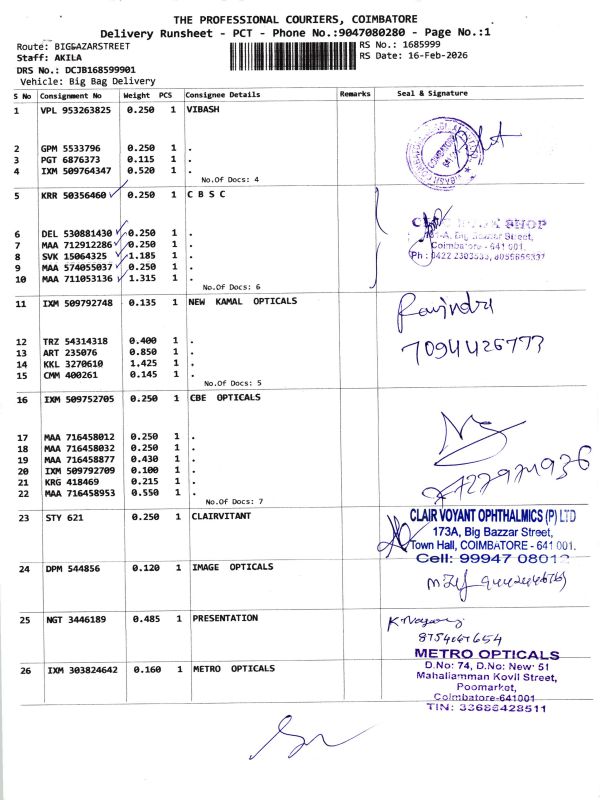 THE PROFESSIONAL COURIERS, COIMBATORE
Delivery Runsheet - PCT - Phone No.:9047080280 - Page No.:1
Route: BIGBAZARSTREET
RS No.: 1685999
Staff: AKILA
RS Date: 16-Feb-2026
DRS No.: DCJB168599901
Vehicle: Big Bag Delivery
S No Consignment No Weight PCS Consignee Details Remarks Seal & Signature
1 VPL 953263825 0.250 1 VIBASH
2 GPM 5533796 0.250 1 .
3 PGT 6876373 0.115 1 .
4 IXM 509764347 0.520 1 .
No.Of Docs: 4
5 KRR 50356460 0.250 1 C B S C
6 DEL 530881430 0.250 1 .
7 MAA 712912286 0.250 1 .
8 SVK 15064325 1.185 1 .
9 MAA 574055037 0.250 1 .
10 MAA 711053136 1.315 1 .
No.Of Docs: 6
SHOP
Big Bazzar Street,
Coimbatore - 641 001.
11 IXM 509792748 0.135 1 NEW KAMAL OPTICALS
Ravindra
7094426773
12 TRZ 54314318 0.400 1 .
13 ART 235076 0.850 1 .
14 KKL 3270610 1.425 1 .
15 CMM 400261 0.145 1 .
No.Of Docs: 5
16 IXM 509752705 0.250 1 CBE OPTICALS
17 MAA 716458012 0.250 1 .
18 MAA 716458032 0.250 1 .
19 MAA 716458877 0.430 1 .
20 IXM 509792709 0.100 1 .
21 KRG 418469 0.215 1 .
22 MAA 716458953 0.550 1 .
No.Of Docs: 7
23 STY 621 0.250 1 CLAIRVITANT
CLAIR VOYANT OPHTHALMICS (P) LTD
173A, Big Bazzar Street,
Town Hall, COIMBATORE - 641 001.
Cell: 99947 08012
24 DPM 544856 0.120 1 IMAGE OPTICALS
25 NGT 3446189 0.485 1 PRESENTATION
26 IXM 303824642 0.160 1 METRO OPTICALS
METRO OPTICALS
D.No: 74, D.No: New 51
Mahaliamman Kovil Street,
Poomarket,
Coimbatore-641001
TIN: 33686428511